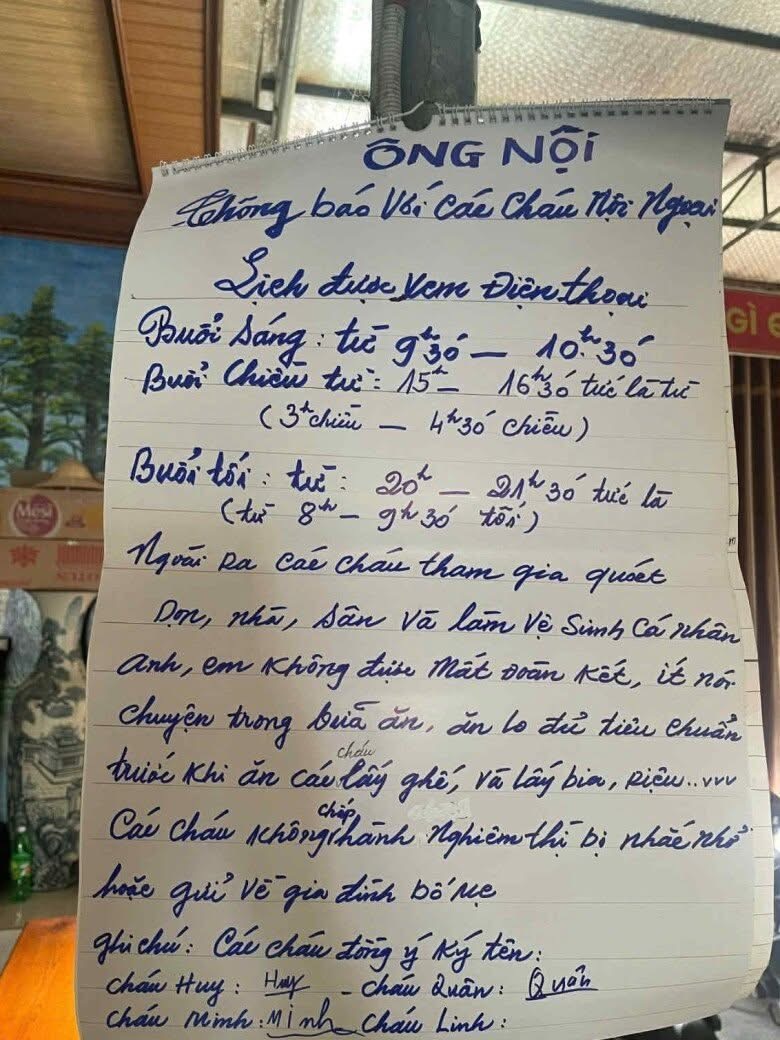 ÔNG NỘI
Thông báo với các cháu Nội Ngoại
Lịch được xem Điện thoại
Buổi sáng: từ 9h30 – 10h30
Buổi chiều từ: 15h – 16h30 tức là từ
(3h chiều – 4h30 chiều)
Buổi tối: từ: 20h – 21h30 tức là
(từ 8h – 9h30 tối)
Ngoài ra các cháu tham gia quét
Dọn, nhà, sân và làm vệ sinh cá nhân
anh, em không được mất đoàn kết, ít nói
chuyện trong bữa ăn, ăn lo đủ tiêu chuẩn
trước khi ăn các cháu lấy ghế, và lấy bia, rượu..vvv
Các cháu không chấp hành nghiêm thì bị nhắc nhở
hoặc gửi về gia đình bố mẹ
ghi chú: Các cháu đồng ý ký tên:
cháu Huy: Huy – cháu Quân: Quân
cháu Minh: Minh cháu Linh:
GÌ
Mesi